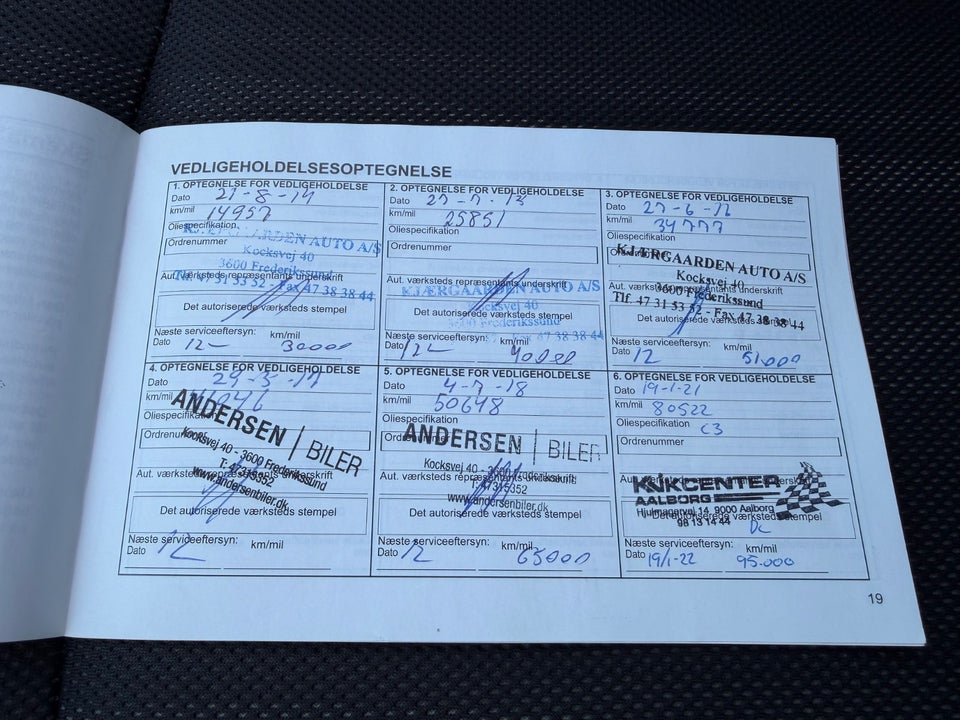 VEDLIGEHOLDELSESOPTEGNELSE
1. OPTEGNELSE FOR VEDLIGEHOLDELSE
Dato 21-8-14
km/mil 14957
Oliespecifikation
KJÆRGAARDEN AUTO A/S
Ordrenummer
Kocksvej 40
3600 Frederikssund
Aut. værksteds repræsentants underskrift
Tlf. 47 31 53 52 - Fax 47 38 38 44
Det autoriserede værksteds stempel
Næste serviceeftersyn: km/mil
Dato 12- 30000
2. OPTEGNELSE FOR VEDLIGEHOLDELSE
Dato 27-7-15
km/mil 25851
Oliespecifikation
Ordrenummer
Aut. værksteds repræsentants underskrift
KJÆRGAARDEN AUTO A/S
Kocksvej 40
Det autoriserede værksteds stempel
3600 Frederikssund
47 38 38 44
Næste serviceeftersyn: km/mil
Dato 12- 40000
3. OPTEGNELSE FOR VEDLIGEHOLDELSE
Dato 27-6-16
km/mil 34777
Oliespecifikation
Ordrenummer
KJÆRGAARDEN AUTO A/S
Kocksvej 40
3600 Frederikssund
Aut. værksteds repræsentants underskrift
Tlf. 47 31 53 52 - Fax 47 38 38 44
Det autoriserede værksteds stempel
Næste serviceeftersyn: km/mil
Dato 12 51.000
4. OPTEGNELSE FOR VEDLIGEHOLDELSE
Dato 29-5-17
km/mil
Oliespecifikation
ANDERSEN | BILER
Ordrenummer
Kocksvej 40 - 3600 Frederikssund
T: 47315352
www.andersenbiler.dk
Aut. værksteds repræsentants underskrift
Det autoriserede værksteds stempel
Næste serviceeftersyn:
Dato 12 km/mil
5. OPTEGNELSE FOR VEDLIGEHOLDELSE
Dato 4-7-18
km/mil 50648
Oliespecifikation
Ordrenummer
ANDERSEN | BILER
Kocksvej 40 - 3600 Frederikssund
Aut. værksteds repræsentants underskrift
T: 47315352
www.andersenbiler.dk
Det autoriserede værksteds stempel
Næste serviceeftersyn: km/mil
Dato 12 65000
6. OPTEGNELSE FOR VEDLIGEHOLDELSE
Dato 19-1-21
km/mil 80522
Oliespecifikation C3
Ordrenummer
KvikCENTER
AALBORG
Hjulmagervej 14, 9000 Aalborg
98 13 14 44
Det autoriserede værksteds stempel
Næste serviceeftersyn: km/mil
Dato 19/1-22 95.000
19